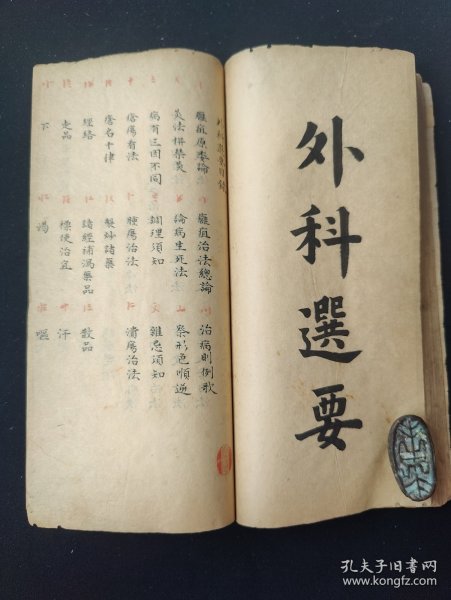 外科選要
癰疽原委論 癰疽治法總論 治病則例歌
灸法併禁灸 論病生死法 察形色順逆
病有三因不同 調理須知 雜忌須知
瘡瘍有法 腫瘍治法 潰瘍治法
瘡名十律 製妙諸藥
經絡 諸經補瀉藥品 散品
走品 標使治宜 汗
下 渴 嘔
孔夫子旧书网
www.kongfz.com